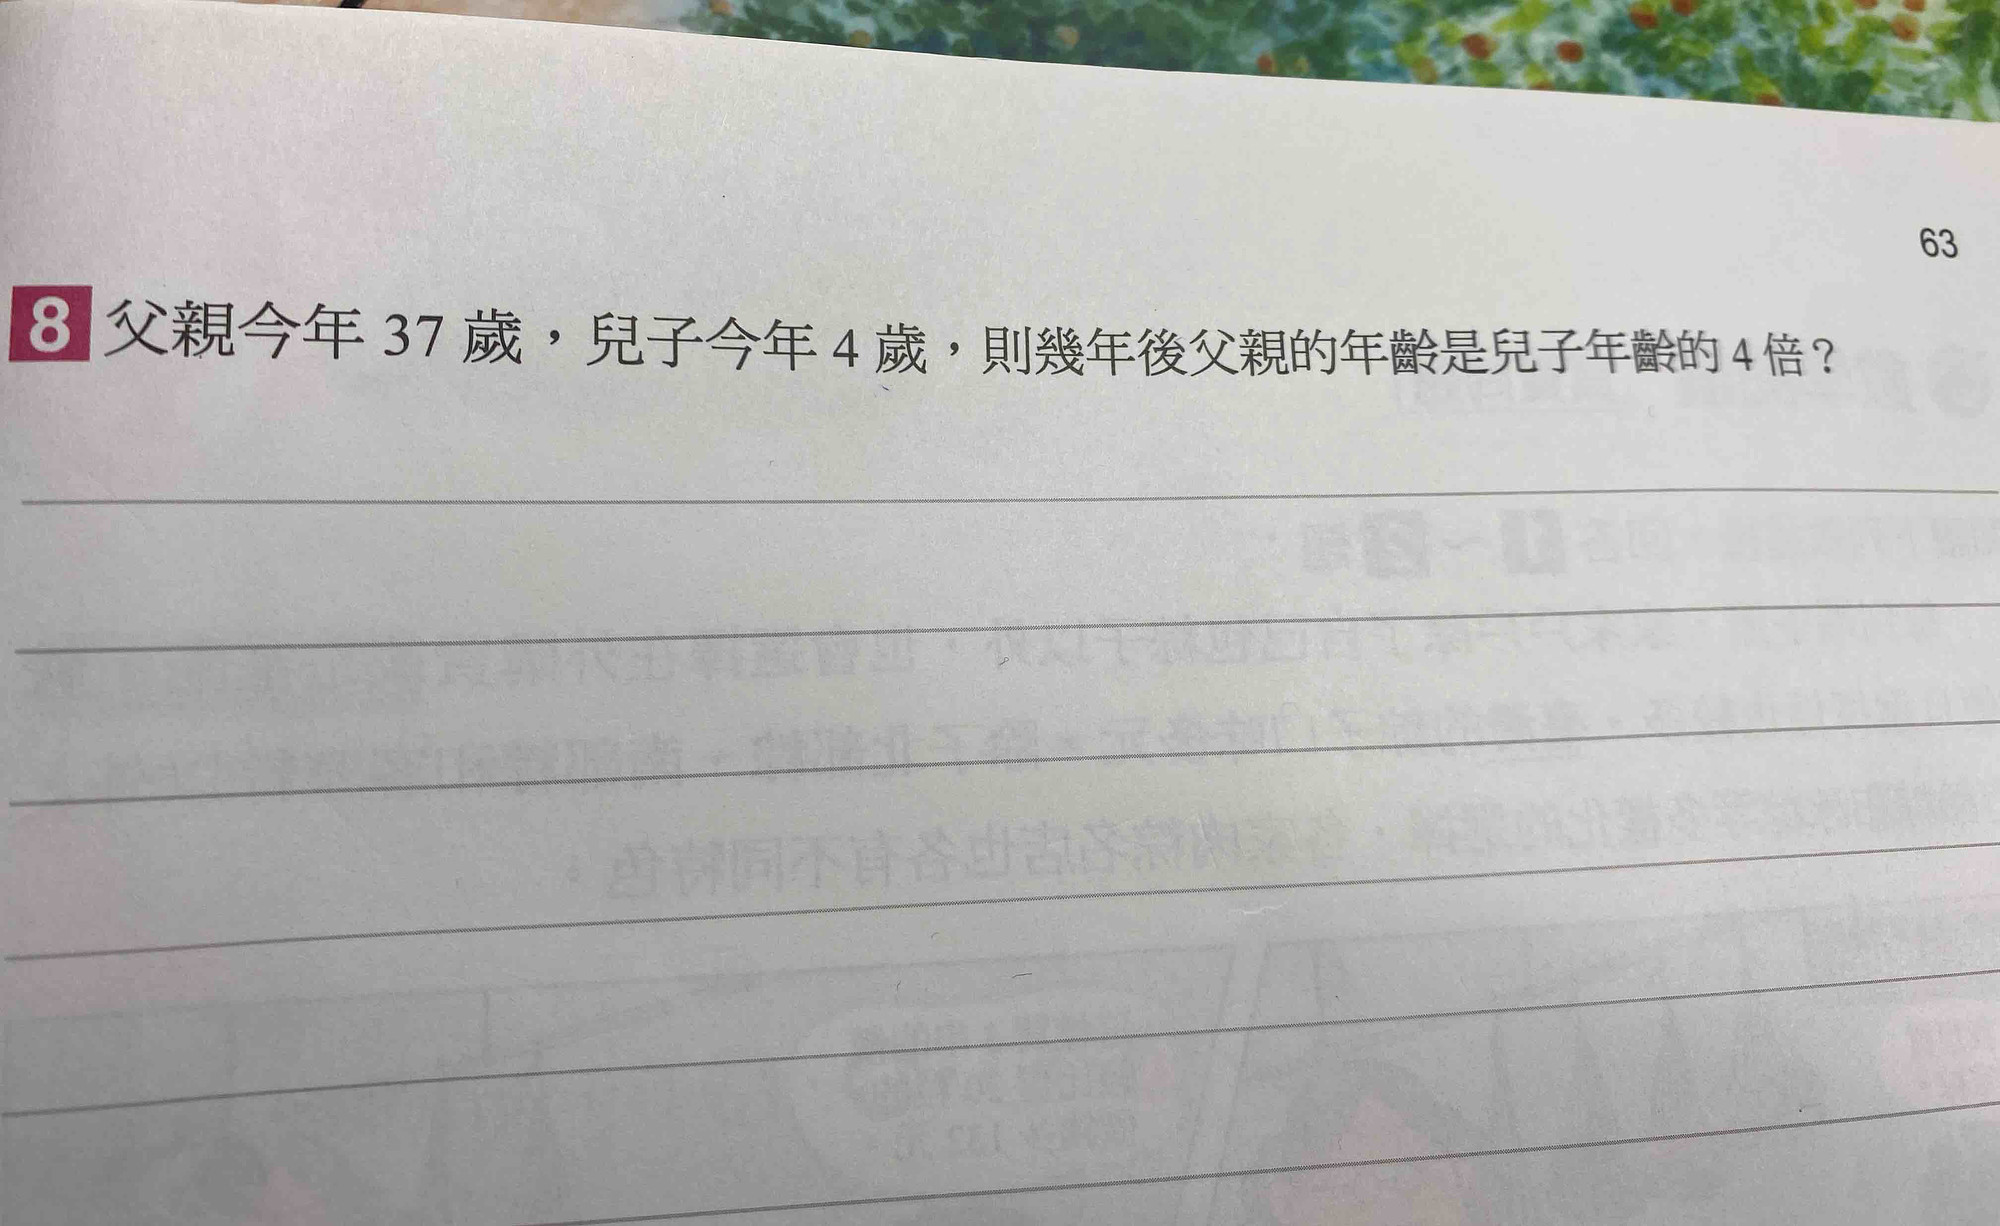 63
8 父親今年 37 歲，兒子今年 4 歲，則幾年後父親的年齡是兒子年齡的 4 倍？